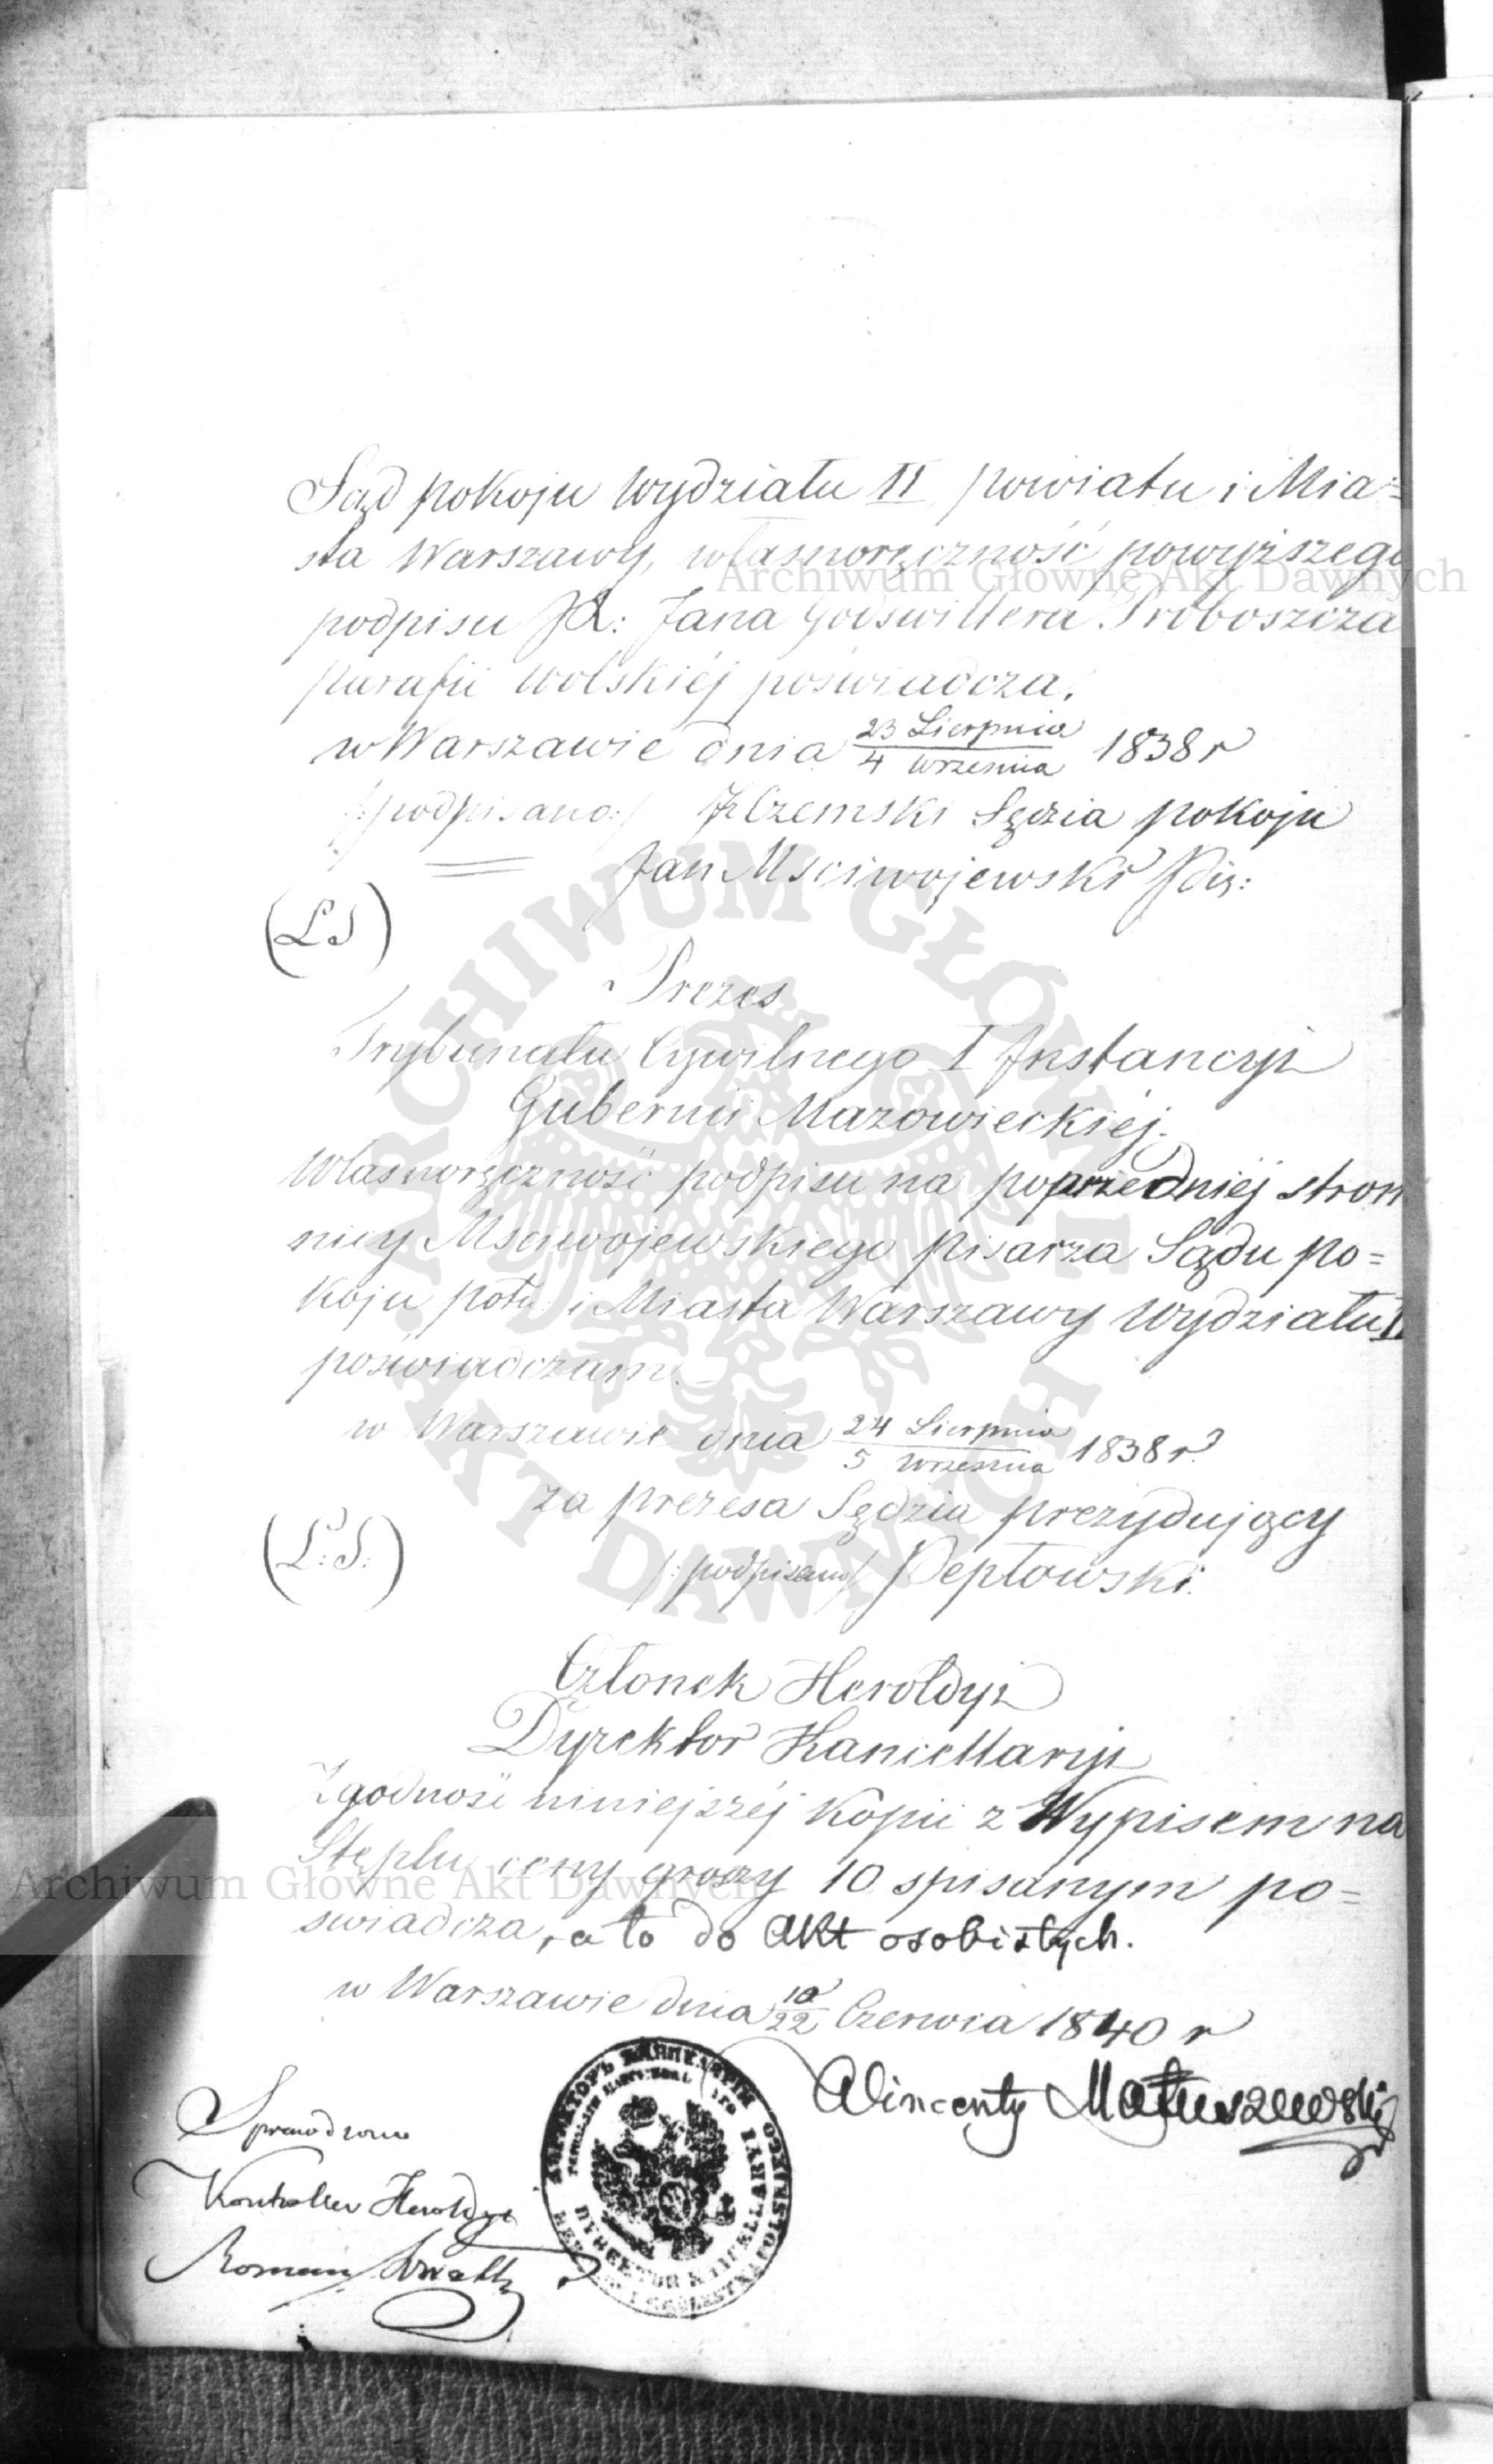 Sąd pokoju Wydziału II powiatu i Mia=
sta Warszawy, własnoręczność powyższego
podpisu JX: Jana Godswillera Proboszcza
parafii Wolskiéj poświadcza.
w Warszawie dnia 23 Sierpnia / 4 Września 1838 r
/:podpisano:/ Sędzia pokoju
Jan Msciwojewski Pis:
(L S)
Prezes
Trybunału Cywilnego I Instancyi
Gubernii Mazowieckiéj.
Własnoręczność podpisu na poprzedniéj stron
nicy Msciwojewskiego pisarza Sądu po=
koju potu i Miasta Warszawy Wydziału II
poświadczam.
w Warszawie dnia 24 Sierpnia / 5 Września 1838 r.
za prezesa Sędzia prezydujący
/:podpisano/ Peptowski.
(L.:S:)
Członek Heroldyi
Dyrektor Kancellaryi
Zgodność niniejszéj Kopii z Wypisem na
Stęplu ceny groszy 10 spisanym po=
świadcza, a to do Akt osobistych.
w Warszawie dnia 10/22 Czerwca 1840 r
Wincenty Matuszewski
Sprawdzono
Kontroller Heroldyi
Roman
DYREKTOR KANCELLARYI
Archiwum Główne Akt Dawnych
ARCHIWUM GŁÓWNE AKT DAWNYCH
Archiwum Główne Akt Dawnych